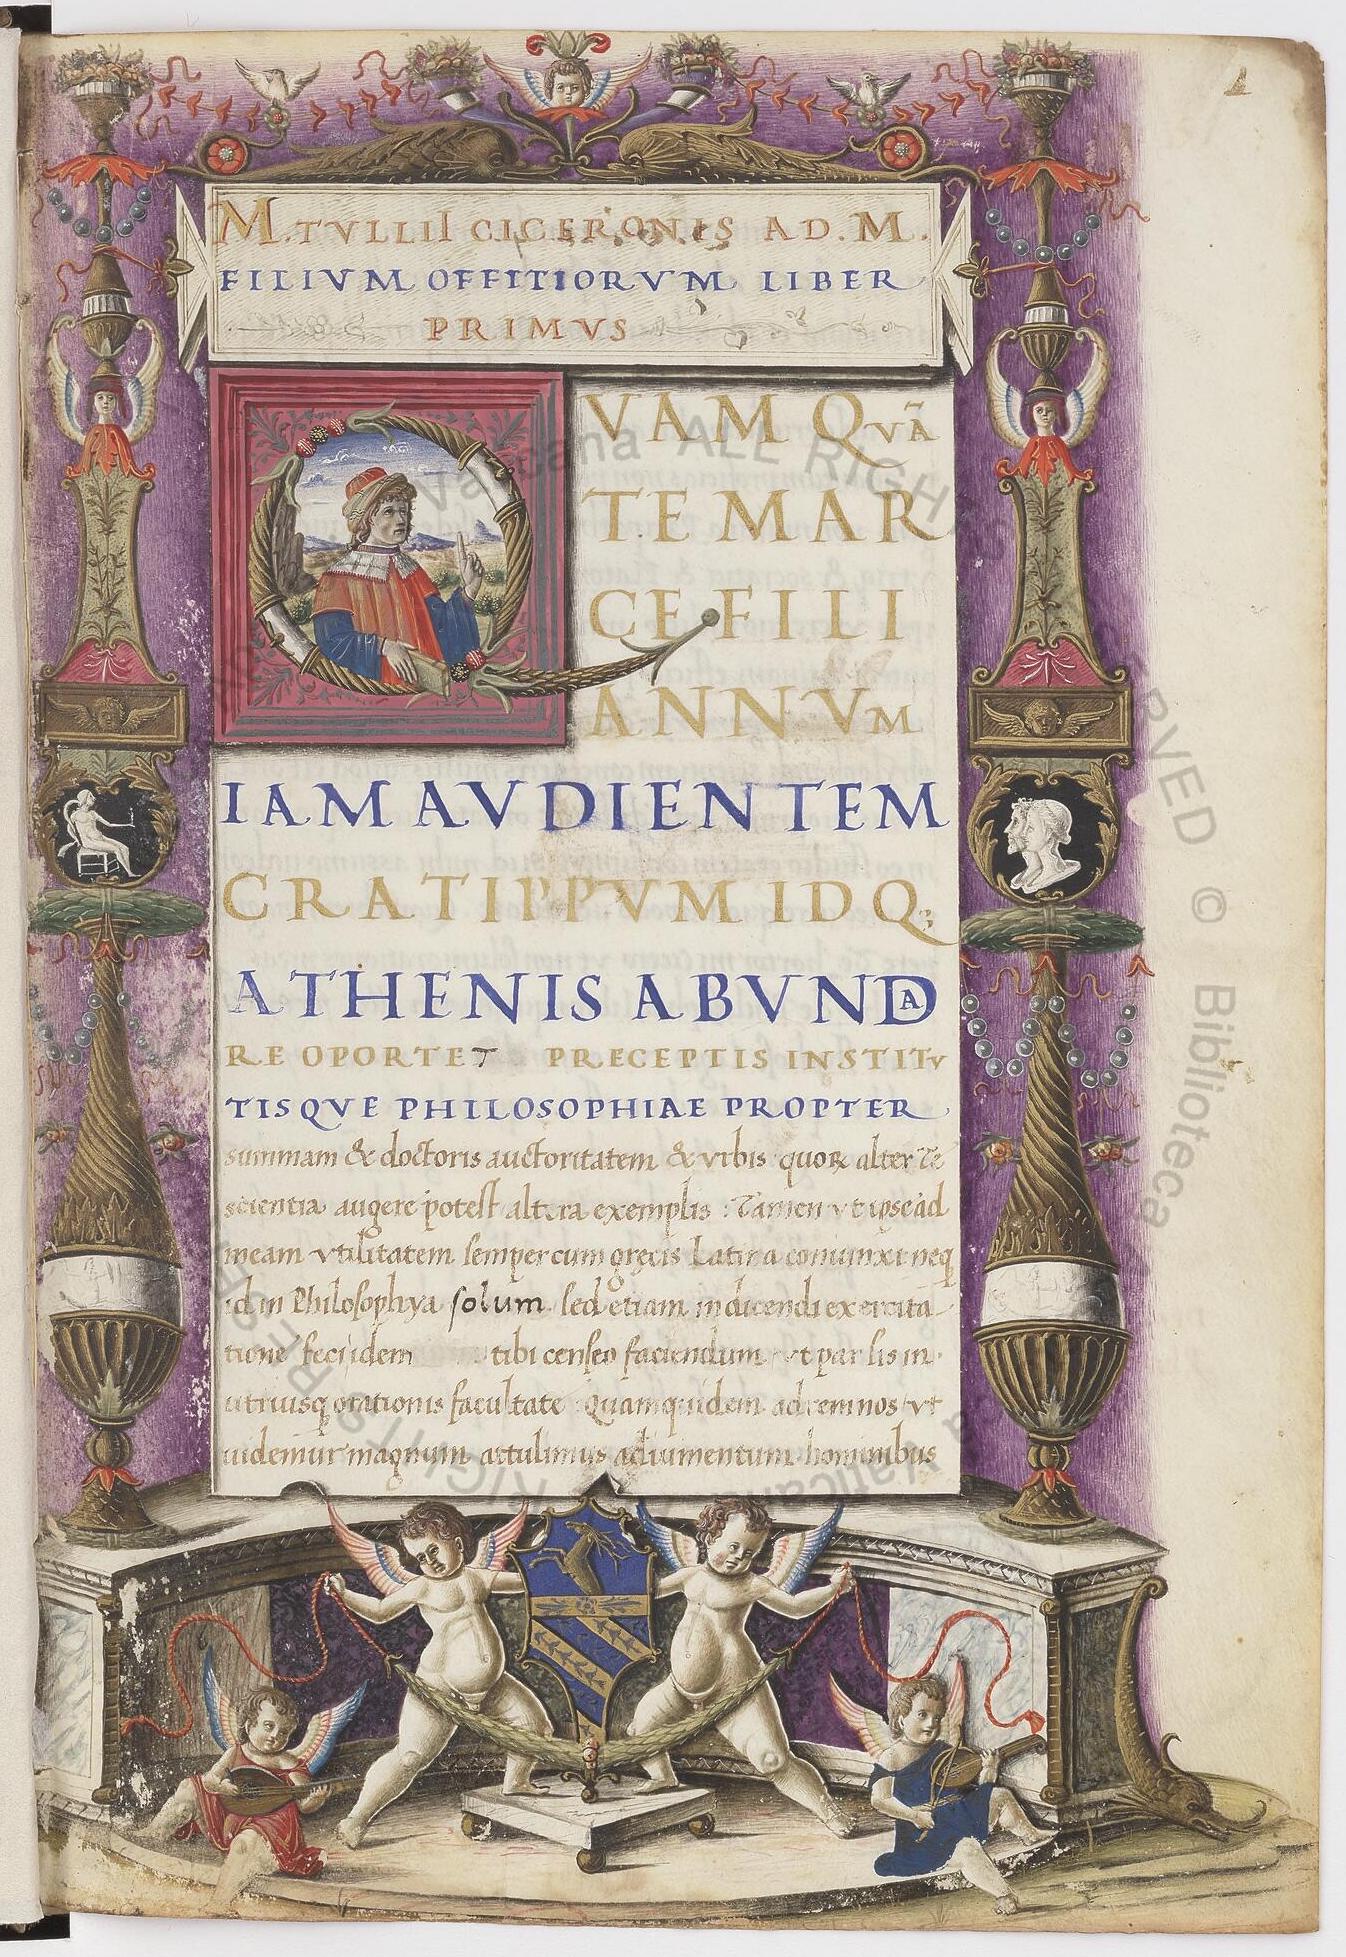 1
M. TVLLII CICERONIS AD. M.
FILIVM OFFITIORVM LIBER
PRIMVS
QVAM QVÃ
TE MAR
CE FILI
ANNVM
IAM AVDIENTEM
CRATIPPVM IDQ;
ATHENIS ABVNDA
RE OPORTET PRECEPTIS INSTITV
TISQVE PHILOSOPHIAE PROPTER
summam & doctoris auctoritatem & vrbis quoꝝ alter Te
scientia augere potest altera exemplis : Tamen vt ipse ad
meam vtilitatem semper cum grecis Latina coniunxi neq
id in Philosophya solum sed etiam in dicendi exercita
tione feci idem tibi censeo faciendum vt par sis in
utriusq orationis facultate Quam quidem ad rem nos vt
uidemur magnum attulimus adiumentum hominibus
Vaticana ALL RIGHTS RESERVED © Biblioteca Vaticana RIGHTS RESE